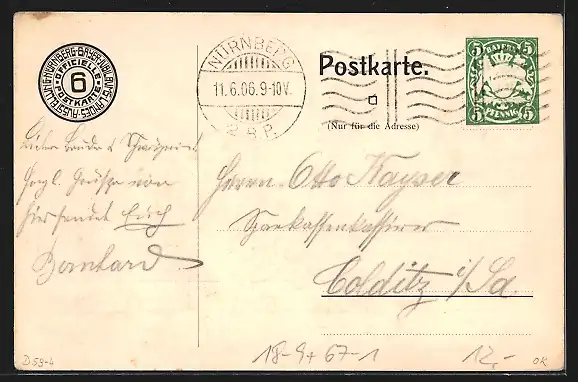 NÜRNBERG·BAYER·JUBILÄUMS·LANDES·AUSSTELLUNG
OFFICIELLE
6
POSTKARTE
NÜRNBERG
11.6.06.9-10V.
2 B.P.
Postkarte.
(Nur für die Adresse)
BAYERN
5 5
5 5
PFENNIG
Lieber Bruder &
Herzl. Grüsse von
hier sendet Euch
Bernhard
Herrn Otto Kayser
Sparkassenkassierer
Colditz i/Sa.
D 59-4
18-9+ 67-1
12,-
OK